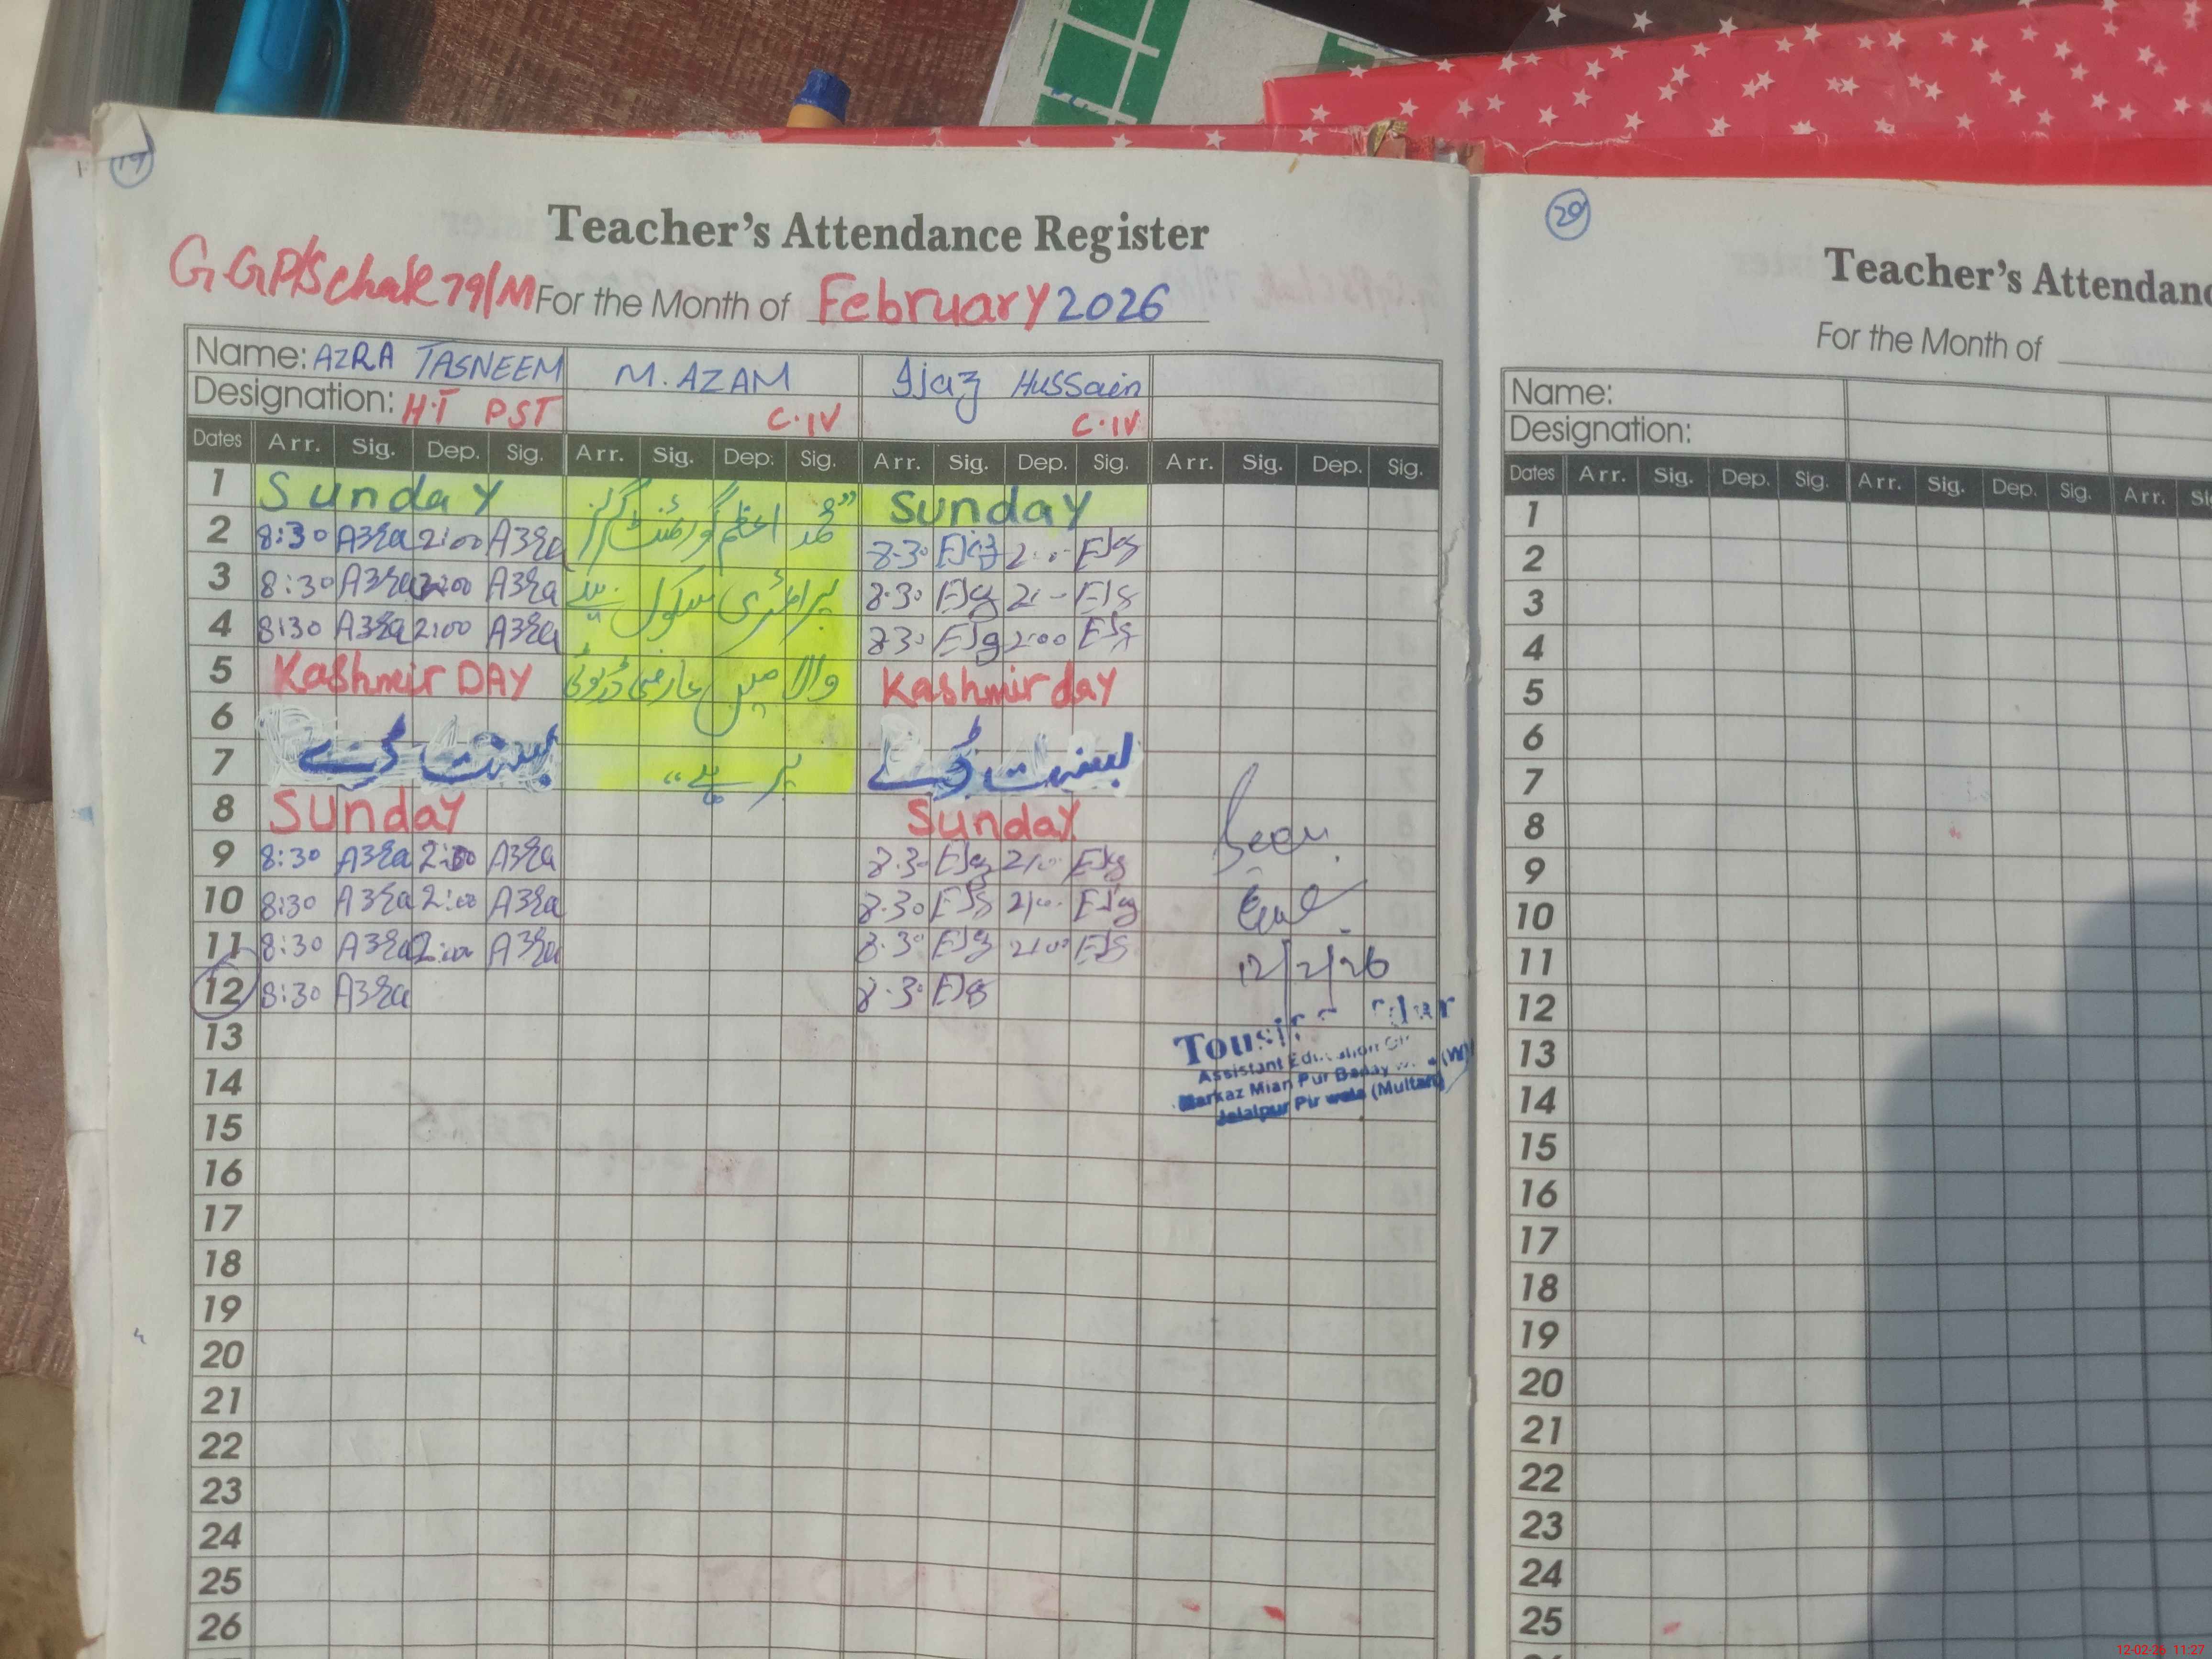 19
Teacher's Attendance Register
G.GP/S chak 79/M For the Month of February 2026
Name: AZRA TASNEEM M. AZAM Ijaz Hussain
Designation: H.T PST C.IV C.IV
Dates Arr. Sig. Dep. Sig. Arr. Sig. Dep. Sig. Arr. Sig. Dep. Sig. Arr. Sig. Dep. Sig.
1 Sunday "محمد اعظم گورنمنٹ گرلز Sunday
2 8:30 Azra 2:00 Azra 8.30 Ejaz 2:00 Ejaz
3 8:30 Azra 2:00 Azra پرائمری سکول 8.30 Ejaz 2:00 Ejaz
4 8:30 Azra 2:00 Azra 8.30 Ejaz 2:00 Ejaz
5 Kashmir DAY والا میں عارضی ڈیوٹی Kashmir day
6
7 بسنت ڈے پر ہے" بسنت ڈے
8 Sunday Sunday Seen
9 8:30 Azra 2:00 Azra 8.30 Ejaz 2:00 Ejaz
10 8:30 Azra 2:00 Azra 8.30 Ejaz 2:00 Ejaz
11 8:30 Azra 2:00 Azra 8.30 Ejaz 2:00 Ejaz 12/2/26
12 8:30 Azra 8.30 Ejaz
13
Assistant Education
14 Markaz Mian Pur (W)
Jalalpur Pir wala (Multan)
15
16
17
18
19
20
21
22
23
24
25
26
20
Teacher's Attendanc
For the Month of
Name:
Designation:
Dates Arr. Sig. Dep. Sig. Arr. Sig. Dep. Sig. Arr.
1
2
3
4
5
6
7
8
9
10
11
12
13
14
15
16
17
18
19
20
21
22
23
24
25
12-02-26 11:27